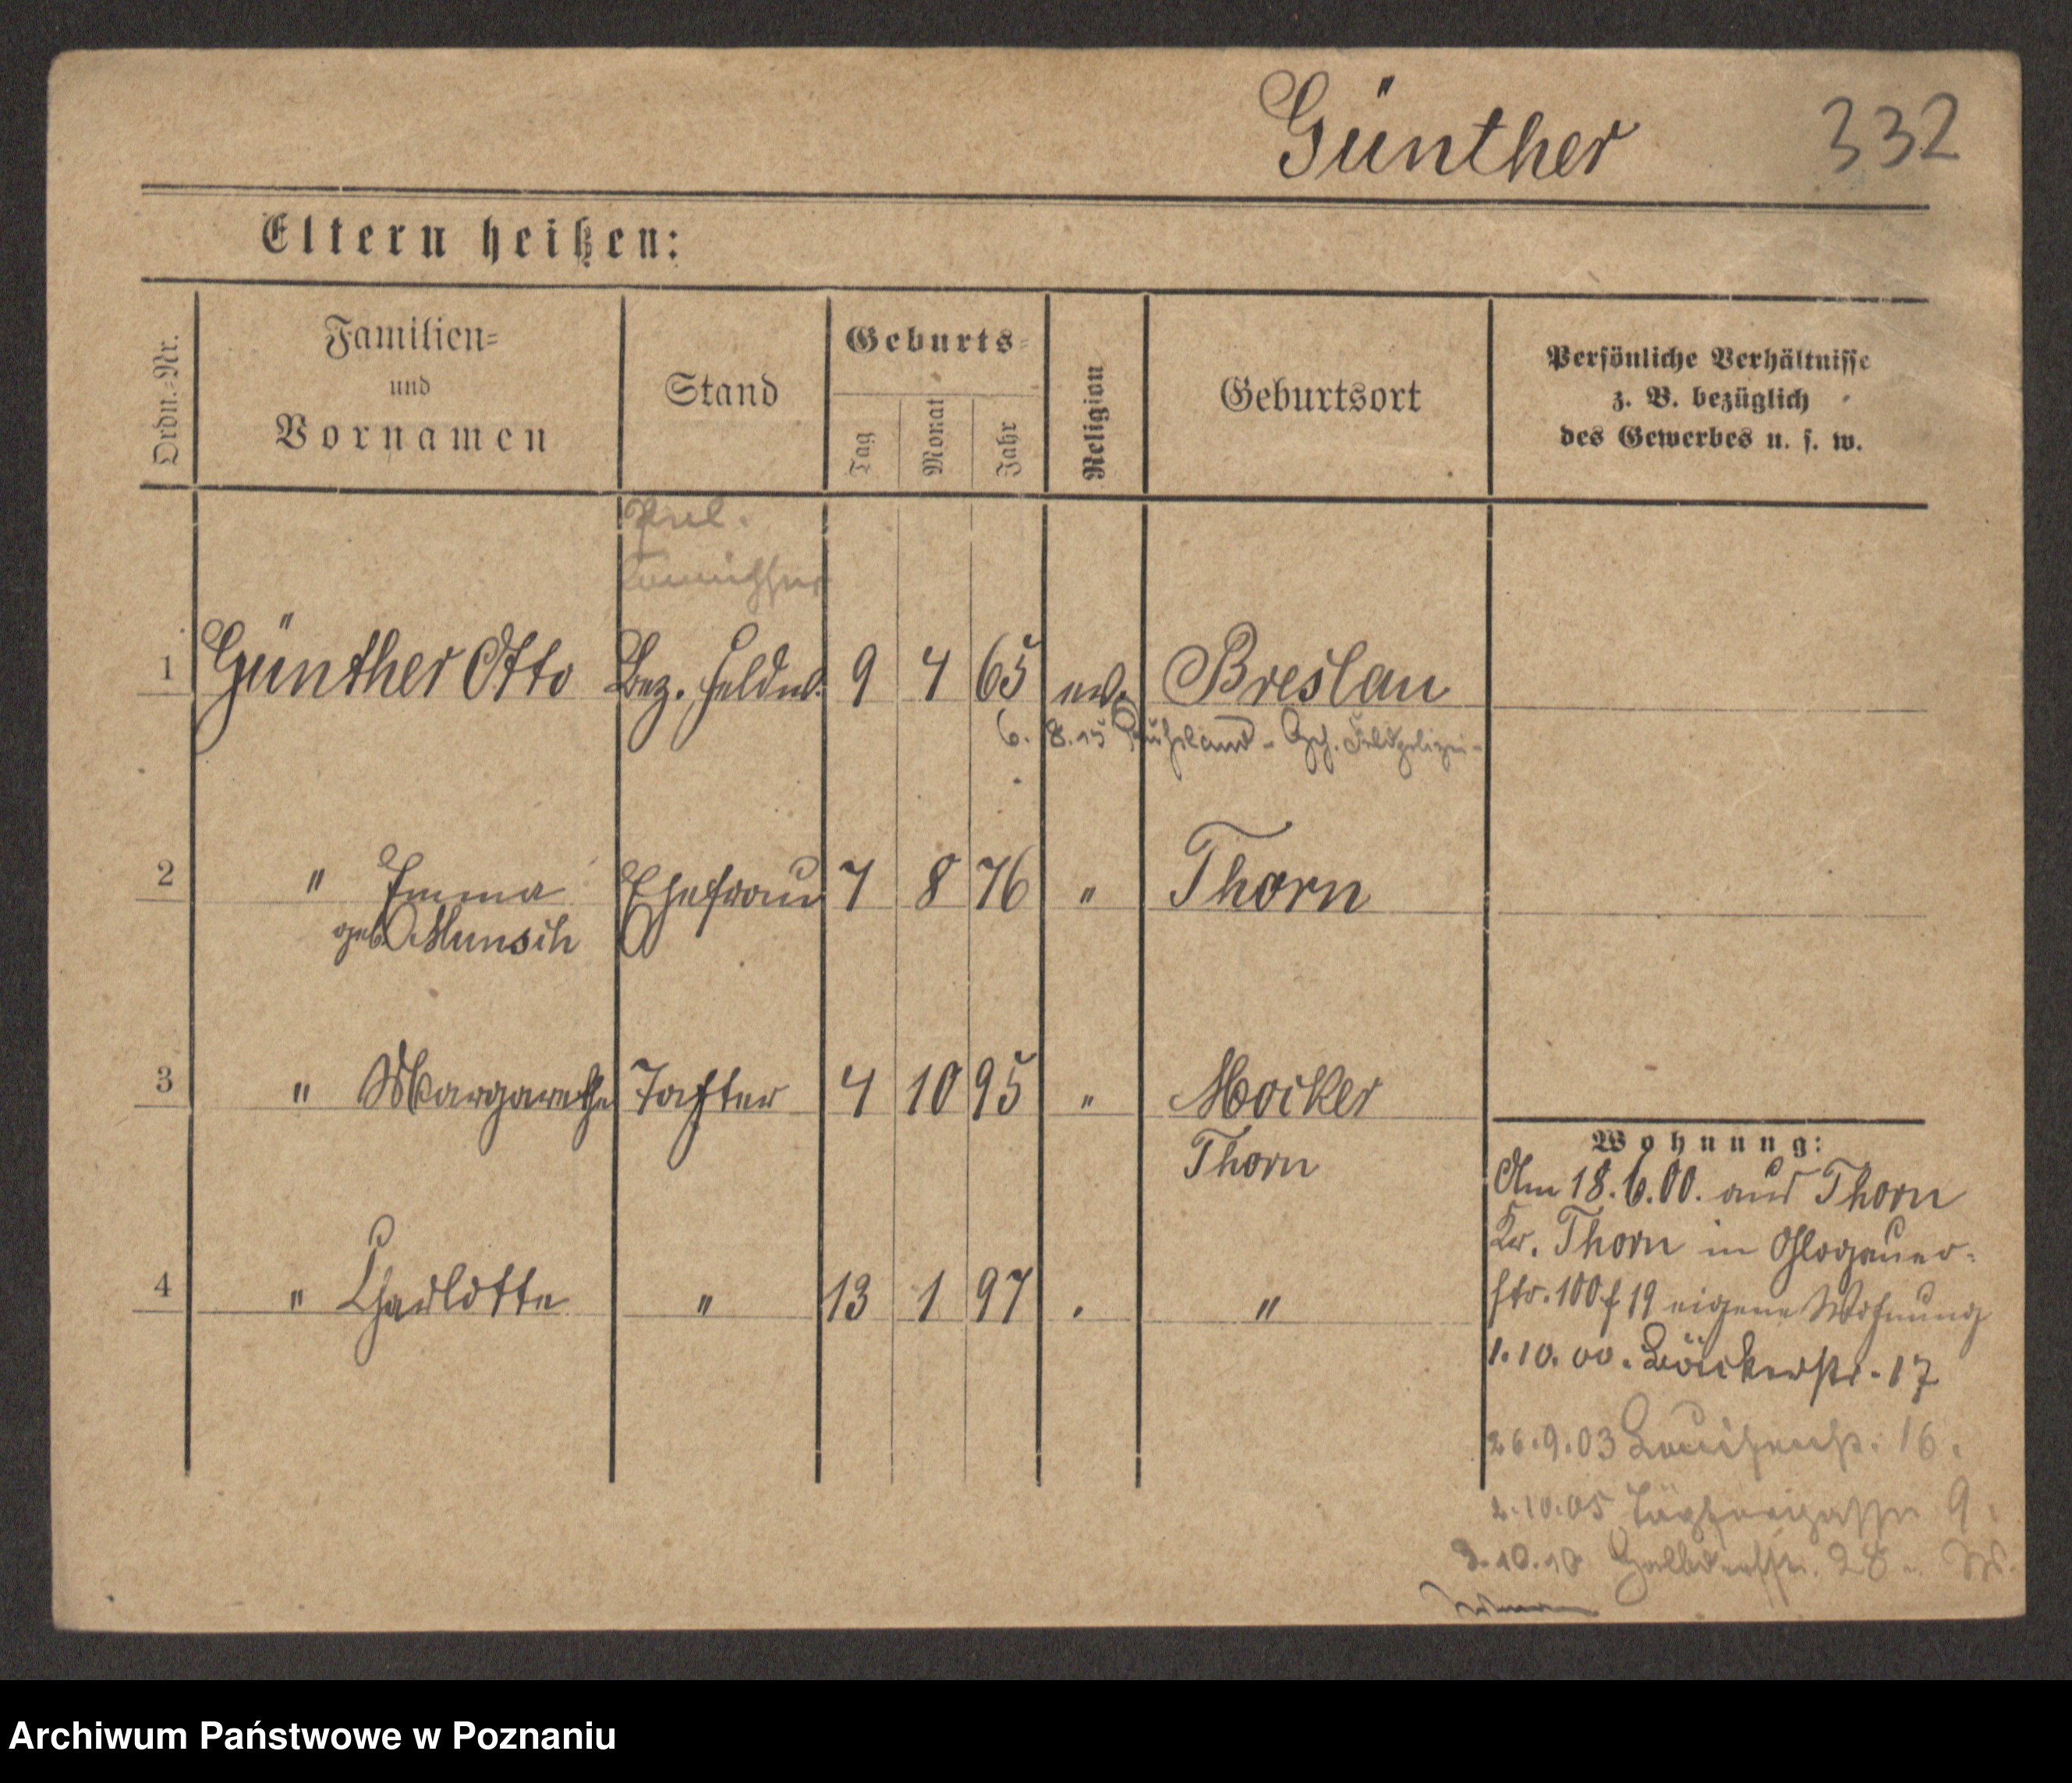 Günther 332
Eltern heißen:
Ordn.-Nr.
Familien=
und
Vornamen
Stand
Geburts=
Tag
Monat
Jahr
Religion
Geburtsort
Persönliche Verhältnisse
z. B. bezüglich
des Gewerbes u. s. w.
Pol.
Kommissar
1 Günther Otto Bez. Feldw. 9 4 65 ev. Breslau
6. 8. 15 Rußland - Geh. Feldpolizei -
2 " Emma Ehefrau 7 8 76 " Thorn
geb. Munsch
3 " Margarethe Tochter 4 10 95 " Mocker
Thorn
4 " Charlotte " 13 1 97 " "
Wohnung:
Am 18.6.00. aus Thorn
Kr. Thorn in Glogauer-
str. 100 f 19 eigene Wohnung
1.10.00. Bäckerstr. 17
26.9.03 Louisenstr. 16.
2.10.05 9.
3.10.10 28
Archiwum Państwowe w Poznaniu